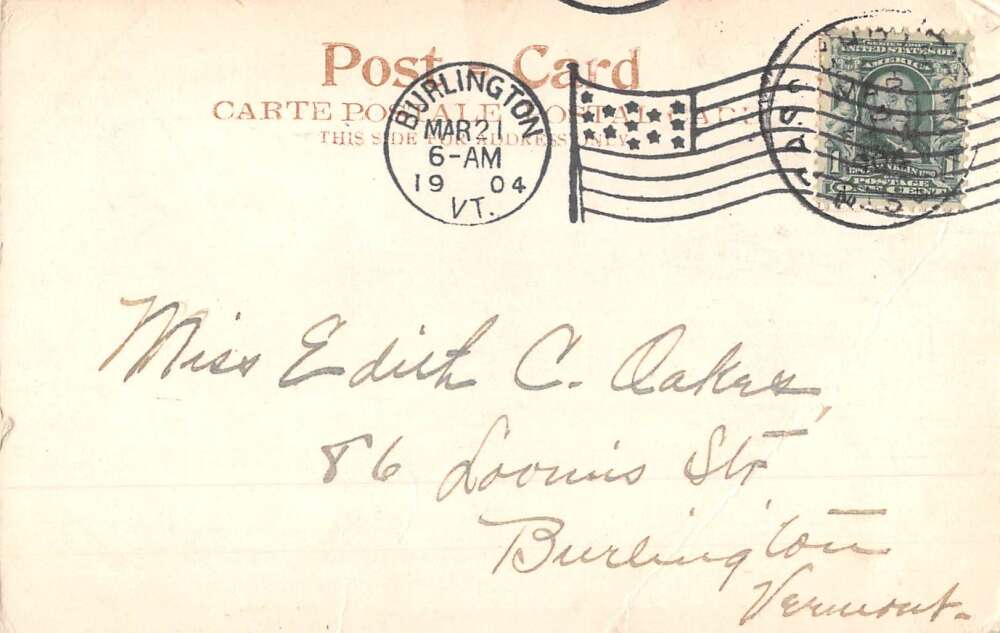 Post Card
CARTE POSTALE POSTAL CARD
THIS SIDE FOR ADDRESS ONLY
BURLINGTON
MAR 21
6-AM
19 04
VT.
SERIES 1902
UNITED STATES OF
AMERICA
1 1
FRANKLIN
POSTAGE
ONE CENT
Miss Edith C. Oakes,
86 Loomis Str
Burlington
Vermont.